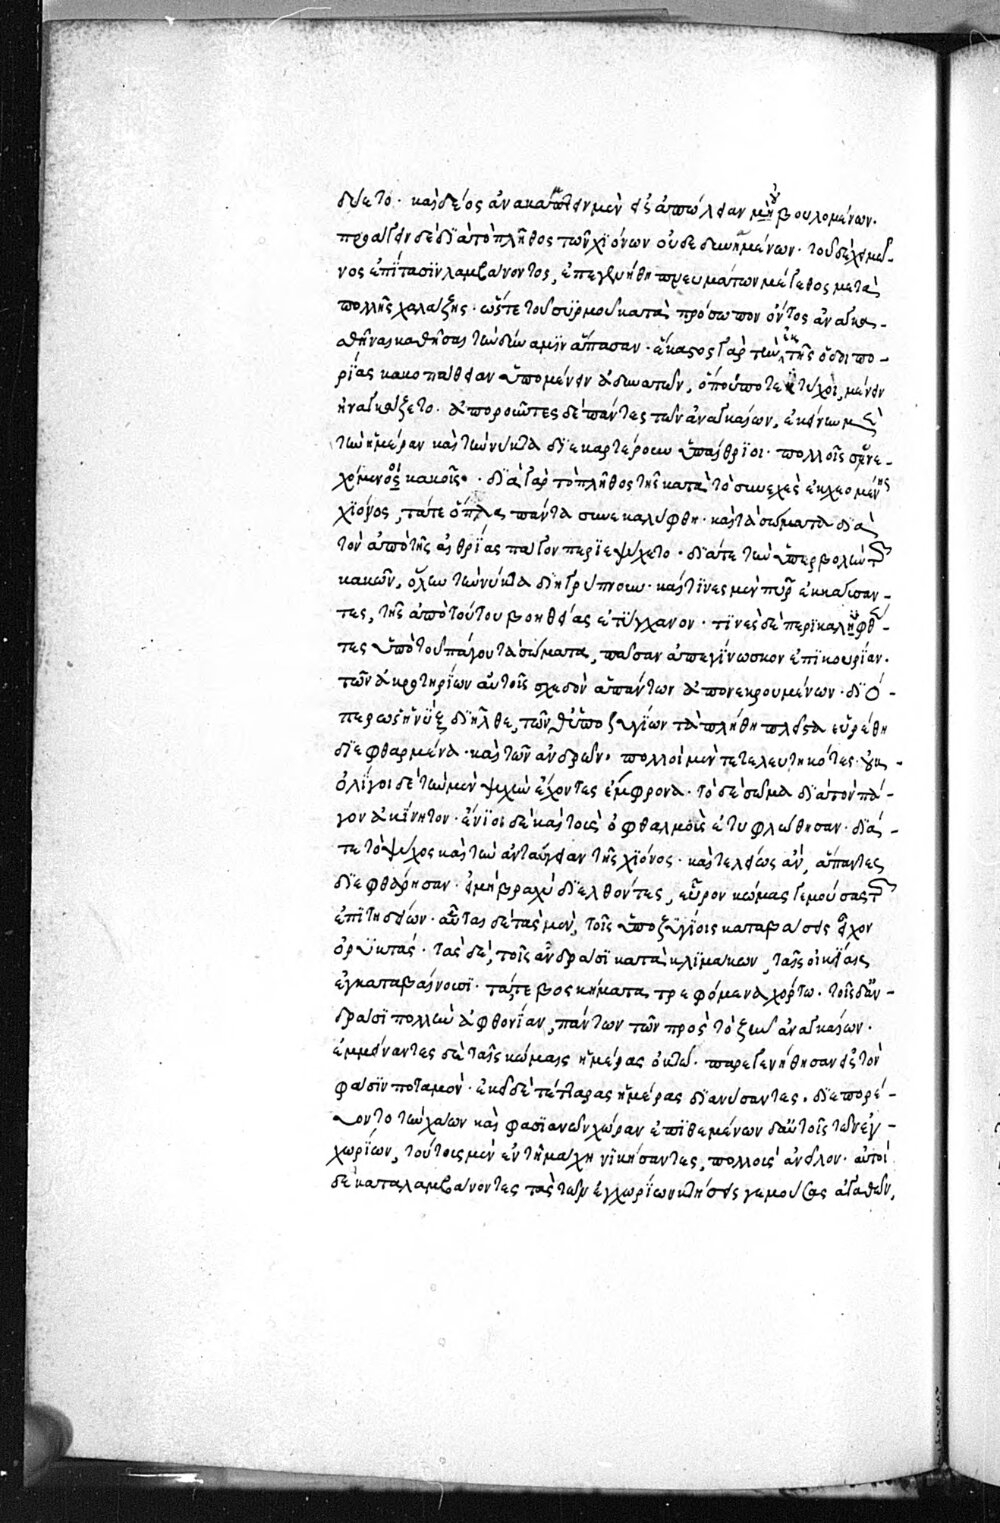 δίζετο· καὶ δέος ἀνακάμπτειν μὲν εἰς ἀπώλειαν μὴ βουλομένων.
προάγειν δὲ διὰ τὸ πλῆθος τῶν χϊόνων οὐδὲ δυναμένων· τοῦ δὲ χειμῶ-
νος ἐπίτασιν λαμβάνοντος, ἐπεγενήθη πνευμάτων μέγεθος μετὰ
πολλῆς χαλάζης· ὥστε τοῦ συρμοῦ κατὰ πρόσωπον ὄντος ἀναγκα-
σθῆναι καθῆσαι τὴν δύναμϊν ἅπασαν· ἕκαστος γὰρ τὴν ἐκ τῆς ὁδοιπο-
ρίας κακοπάθειαν ὑπομένειν ἀδυνατῶν, ὅπου ποτε τύχοι, μένειν
ἠναγκάζετο· ἀποροῦντες δὲ πάντες τῶν ἀναγκαίων, ἐκείνην μὲν
τὴν ἡμέραν καὶ τὴν νύκτα διεκαρτέρουν ὑπαίθριοι· πολλοῖς συνε-
χόμενοι κακοῖς· διὰ γὰρ τὸ πλῆθος τῆς κατὰ τὸ συνεχὲς ἐκχεομένης
χϊόνος, τά τε ὅπλα πάντα συνεκαλύφθη· καὶ τὰ σώματα διὰ
τὸν ἀπὸ τῆς αἰθρίας πάγον περιεψύχετο· διά τε τὴν ὑπερβολὴν τῶν
κακῶν, ὅλην τὴν νύκτα διηγρύπνουν· καὶ τινες μὲν πῦρ ἐκκαύσαν-
τες, τῆς ἀπὸ τούτου βοηθείας ἐτύγχανον· τινὲς δὲ περικαληφθέν-
τες ὑπὸ τοῦ πάγου τὰ σώματα, πᾶσαν ἀπεγίνωσκον ἐπικουρίαν.
τῶν ἀκρωτηρίων αὐτοῖς σχεδὸν ἁπάντων ἀπονεκρουμένων· διό-
περ ὡς ἡ νὺξ διῆλθε, τῶν θ' ὑποζυγίων τὰ πλήθη πλεῖστα εὑρέθη
διεφθαρμένα· καὶ τῶν ἀνδρῶν· πολλοὶ μὲν τετελευτηκότες· οὐκ
ὀλίγοι δὲ τὴν μὲν ψυχὴν ἔχοντες ἔμφρονα· τὸ δὲ σῶμα διὰ τὸν πά-
γον ἀκίνητον· ἔνιοι δὲ καὶ τοὺς ὀφθαλμοὺς ἐτυφλώθησαν· διά-
τε τὸ ψύχος καὶ τὴν ἀνταύγειαν τῆς χϊόνος· καὶ τελείως ἂν, ἅπαντες
διεφθάρησαν· εἰ μὴ βραχὺ διελθόντες, εὗρον κώμας γεμούσας τῶν
ἐπιτηδείων· αὗται δὲ τὰς μὲν, τοῖς ὑποζυγίοις καταβάσεις εἶχον
ὀρυκτάς· τὰς δὲ, τοῖς ἀνδράσϊ κατὰ κλιμάκων, ταῖς οἰκίαις
ἐγκαταβαίνουσϊ· τά τε βοσκήματα τρεφόμενα χόρτω· τοῖς δ' ἀν-
δράσϊ πολλὴν ἀφθονίαν, πάντων τῶν πρὸς τὸ ζῆν ἀναγκαίων.
ἐμμείναντες δὲ ταῖς κώμαις ἡμέρας ὀκτώ· παρεγενήθησαν εἰς τὸν
φάσϊν ποταμὸν· ἐκεῖ δὲ τέτταρας ἡμέρας διανύσαντες, διεπορεύ-
οντο τὴν χάων καὶ φασϊανῶν χώραν ἐπιθεμένων δ' αὐτοῖς τῶν ἐγ-
χωρίων, τούτους μὲν ἐν τῆ μάχη νϊκήσαντες, πολλοὺς ἀνεῖλον· αὐτοὶ
δὲ καταλαμβάνοντες τὰς τῶν ἐγχωρίων κτήσεις γεμούσας ἀγαθῶν,